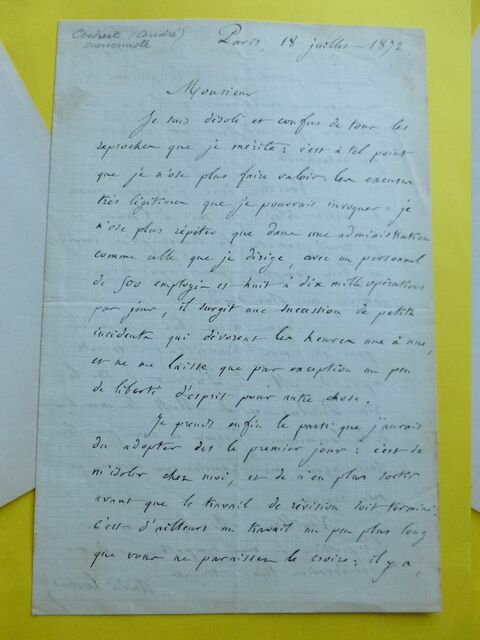 Cochut (André)
économiste
Paris, 18 juillet 1872.
Monsieur
Je suis désolé et confus de tous les
reproches que je mérite : c'est à tel point
que je n'ose plus faire valoir les excuses
très légitimes que je pourrais invoquer : je
n'ose plus répéter que dans une administration
comme celle que je dirige, avec un personnel
de 500 employés et huit à dix mille opérations
par jour, il surgit une succession de petits
incidents qui dévorent les heures une à une,
et ne me laisse que par exception un peu
de liberté d'esprit pour autre chose.
Je prends enfin le parti que j'aurais
du adopter dès le premier jour : c'est de
m'isoler chez moi, et de n'en plus sortir
avant que le travail de révision soit terminé
C'est d'ailleurs un travail un peu plus long
que vous ne paraissez le croire : il y a,